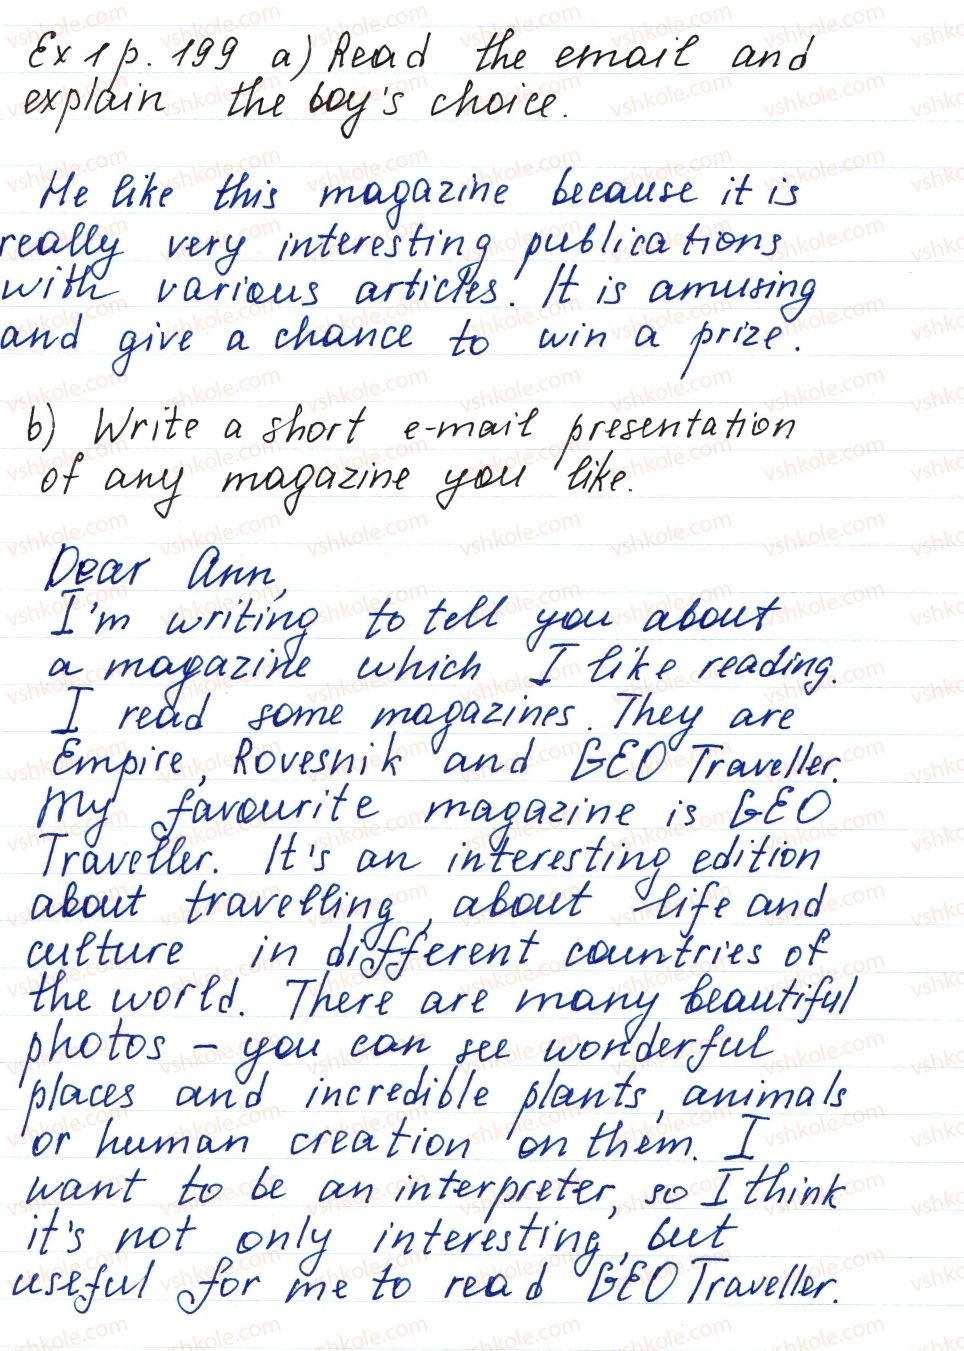 Ex 1 p. 199 a) Read the email and
explain the boy's choice.
He like this magazine because it is
really very interesting publications
with various articles. It is amusing
and give a chance to win a prize.
b) Write a short e-mail presentation
of any magazine you like.
Dear Ann,
I'm writing to tell you about
a magazine which I like reading.
I read some magazines. They are
Empire, Rovesnik and GEO Traveller.
My favourite magazine is GEO
Traveller. It's an interesting edition
about travelling, about life and
culture in different countries of
the world. There are many beautiful
photos – you can see wonderful
places and incredible plants, animals
or human creation on them. I
want to be an interpreter, so I think
it's not only interesting, but
useful for me to read GEO Traveller.